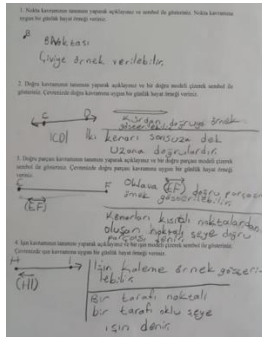 1. Nokta kavramının tanımını yaparak açıklayınız ve sembol ile gösteriniz. Nokta kavramına
uygun bir günlük hayat örneği veriniz.
B
B Noktası
Çiviye örnek verilebilir.
2. Doğru kavramının tanımını yaparak açıklayınız ve bir doğru modeli çizerek sembol ile
gösteriniz. Çevrenizde doğru kavramına uygun bir günlük hayat örneği veriniz.
C D
doğruya örnek
gösterilebilir
|CD| İki kenarı sonsuza dek
uzana doğrulardır.
3. Doğru parçası kavramının tanımını yaparak açıklayınız ve bir doğru parçası modeli çizerek sembol ile
gösteriniz. Çevrenizde doğru parçası kavramına uygun bir günlük hayat örneği veriniz.
E F
Oklava (EF) doğru parçası
örnek gösterilebilir.
(EF)
Kenarları kısıtlı noktalardan
oluşan noktalı şeye doğru
parçası denir.
4. Işın kavramının tanımını yaparak açıklayınız ve bir ışın modeli çizerek sembol ile gösteriniz.
Çevrenizde ışın kavramına uygun bir günlük hayat örneği veriniz.
H I
Işın kaleme örnek gösteri-
lebilir.
(HI)
Bir tarafı noktalı
bir tarafı oklu şeye
ışın denir.